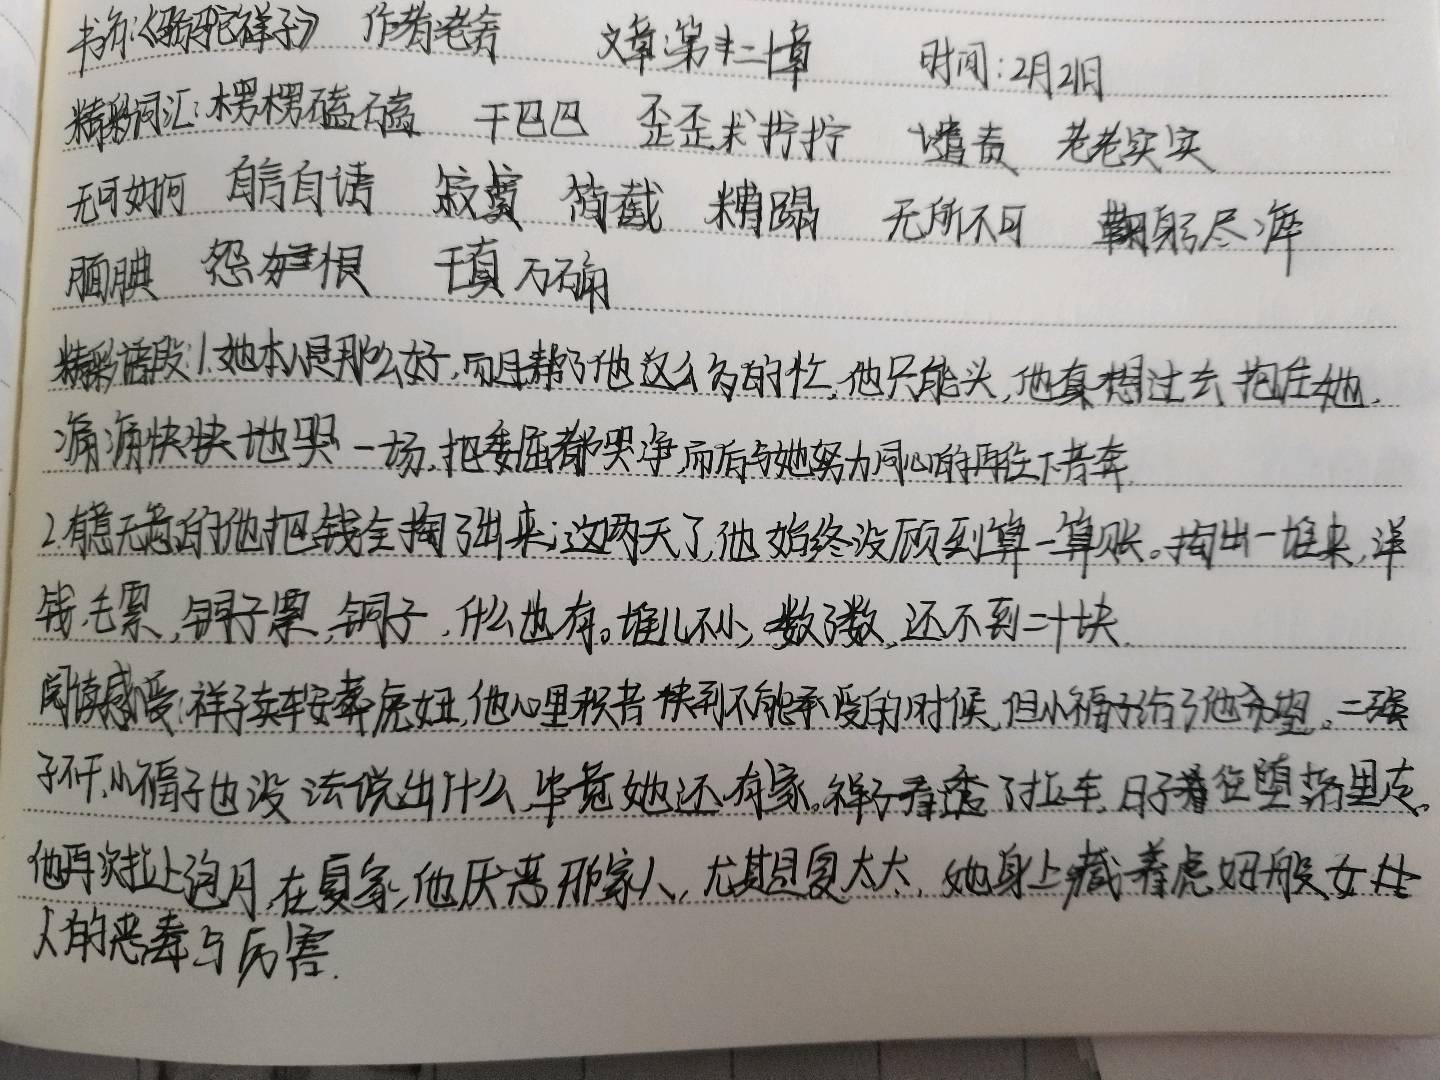 书名:《骆驼祥子》 作者老舍 文章:第二十章 时间:2月21日
精彩词汇:楞楞磕磕 干巴巴 歪歪拧拧 谴责 老老实实
无可如何 自言自语 寂寞 简截 糟蹋 无所不可 鞠躬尽瘁
腼腆 怨恨 千真万确
精彩语段:1.她本人是那么好,而且帮了他这么多的忙,他只能头,他真想过去抱住她,
痛痛快快地哭一场,把委屈都哭净,而后与她努力同心的再往下苦奔.
2.有意无意的他把钱全掏了出来;这两天了,他始终没顾到算一算账。掏出一堆来,洋
钱,毛票,铜子票,铜子,什么也有。堆儿不小,数了数,还不到二十块.
阅读感受:祥子卖车安葬虎妞,他心里积着快到不能承受的时候,但小福子给了他希望。二强
子不干,小福子也没法说出什么,毕竟她还有家。祥子看透了拉车,日子着往堕落里走。
他再次拉上包月,在夏家,他厌恶那家人,尤其是夏太太,她身上藏着虎妞般女
人的恶毒与厉害.